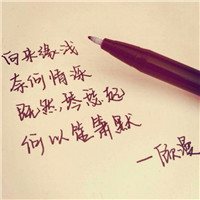 向来缘浅
奈何情深
既然琴瑟起
何以笙箫默